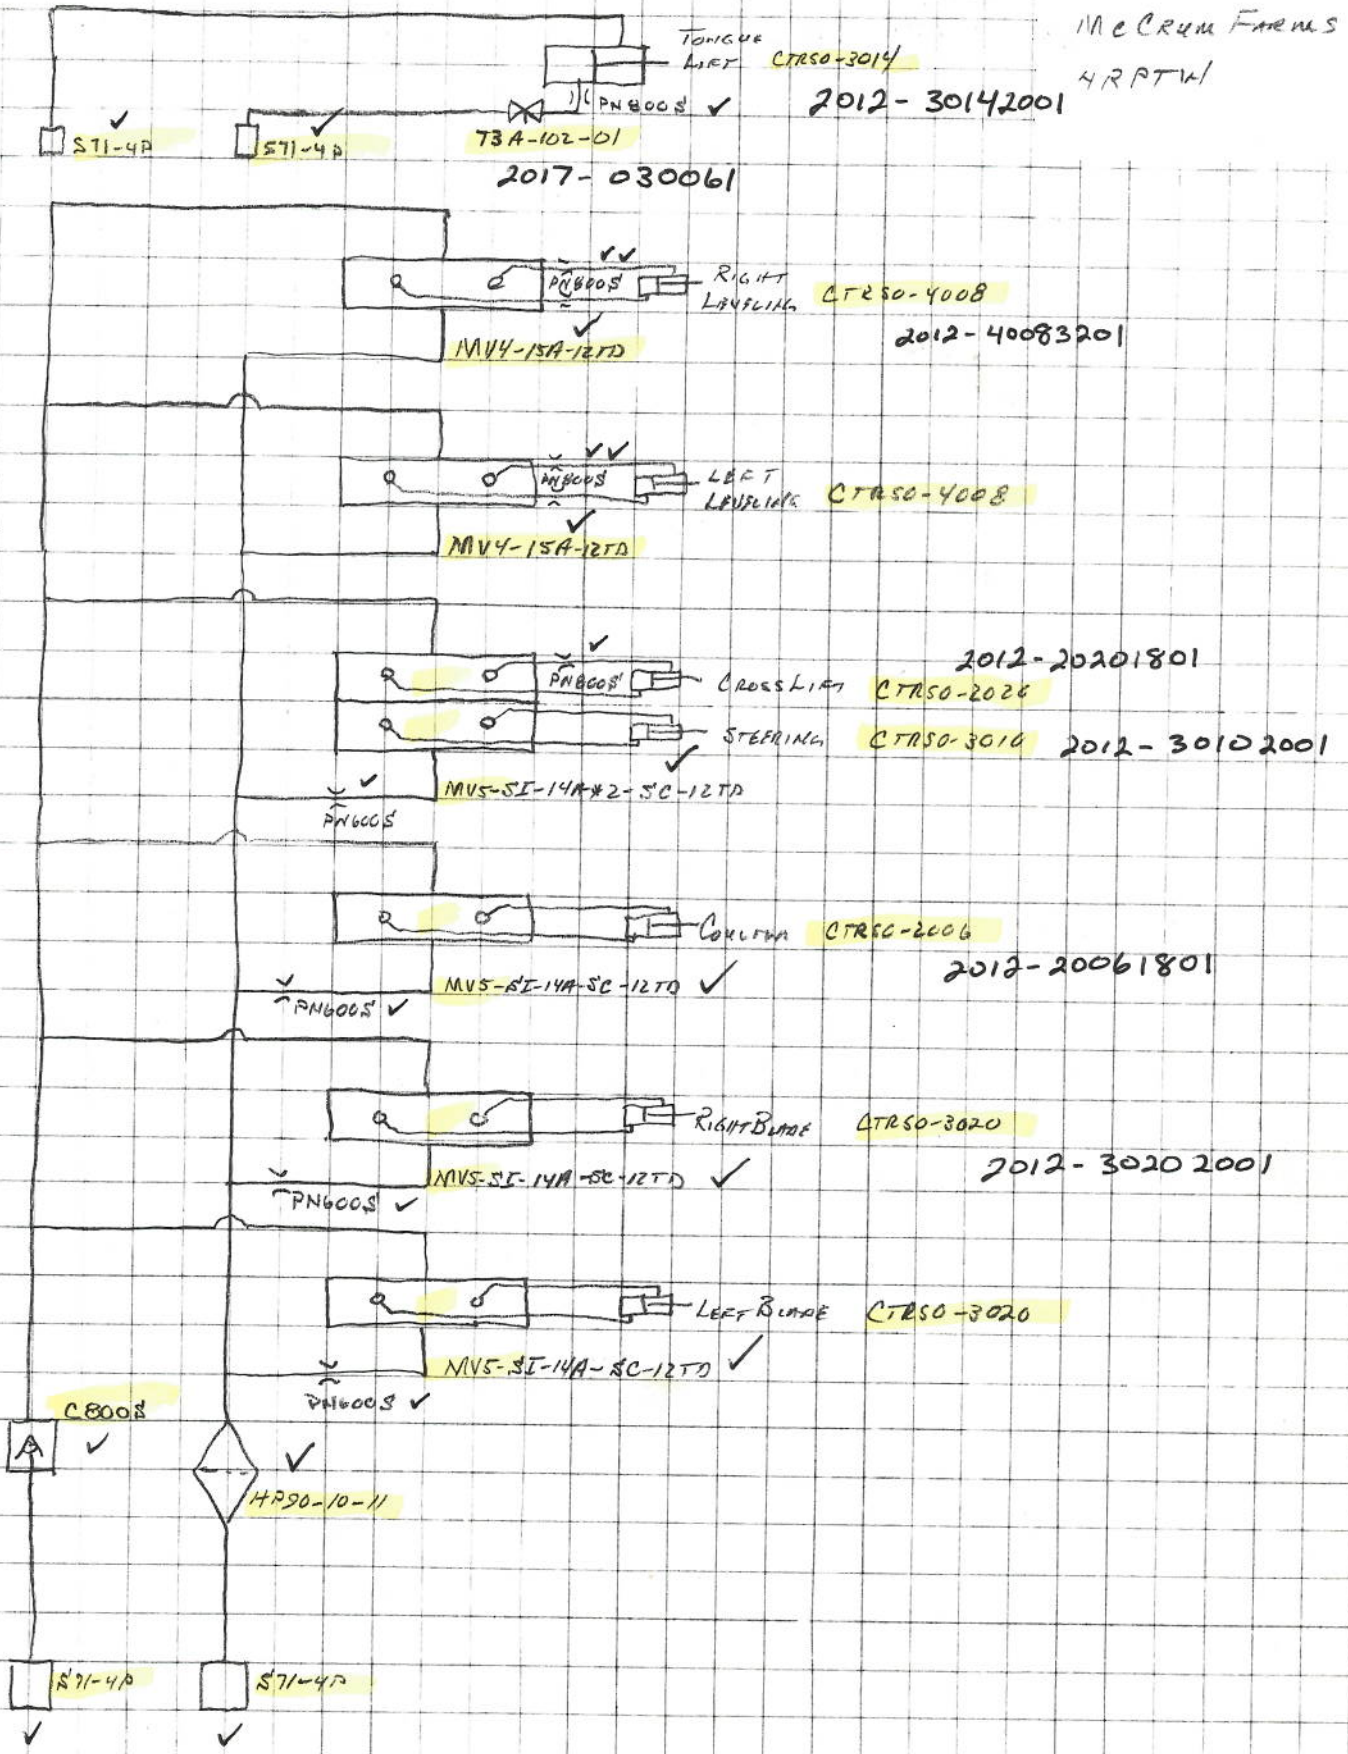 McCrum Farms
4RPTW
Tongue
Lift CTRSO-3014
PN800S ✓ 2012-30142001
✓ S71-4P ✓ S71-4P T3A-102-01
2017-030061
✓✓
PN800S Right
Leveling CTRSO-4008
2012-40083201
✓
MV4-15A-12TD
✓✓
PN800S Left
Leveling CTRSO-4008
✓
MV4-15A-12TD
✓ 2012-20201801
PN800S Cross Lift CTRSO-2020
Steering CTRSO-3010 2012-30102001
✓
✓ MV5-SI-14A*2-SC-12TD
PN600S
Coulter CTRSO-2006
2012-20061801
MV5-SI-14A-SC-12TD ✓
PN600S ✓
Right Blade CTRSO-3020
2012-30202001
MV5-SI-14A-SC-12TD ✓
PN600S ✓
Left Blade CTRSO-3020
MV5-SI-14A-SC-12TD ✓
PN600S ✓
C800S
✓ ✓
HP90-10-11
S71-4P S71-4P
✓ ✓